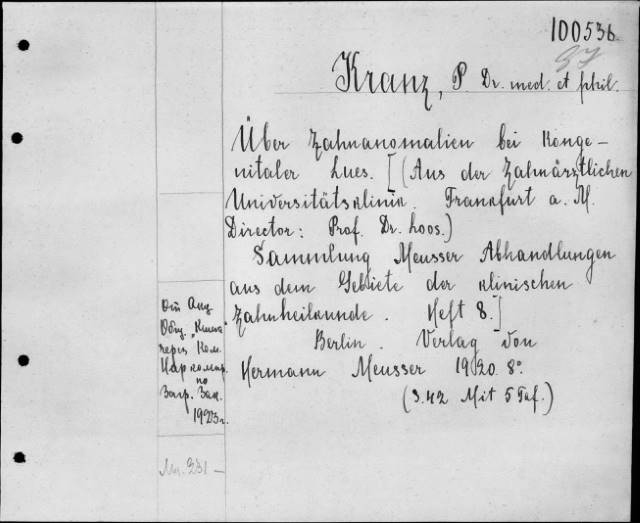 100536
Kranz, P. Dr. med. et phil.
Über Zahnanomalien bei Konge-
nitaler Lues. [(Aus der Zahnärztlichen
Universitätsklinik. Frankfurt a. M.
Director: Prof. Dr. Loos.)
Sammlung Meusser Abhandlungen
aus dem Gebiete der klinischen
Zahnheilkunde. Heft 8.]
Berlin. Verlag von
Hermann Meusser 1920. 8°.
(S. 42 Mit 5 Taf.)
От Акц
Общ. „Книга"
через Ком.
Нар комар.
по
Загр. Зак.
1923г.